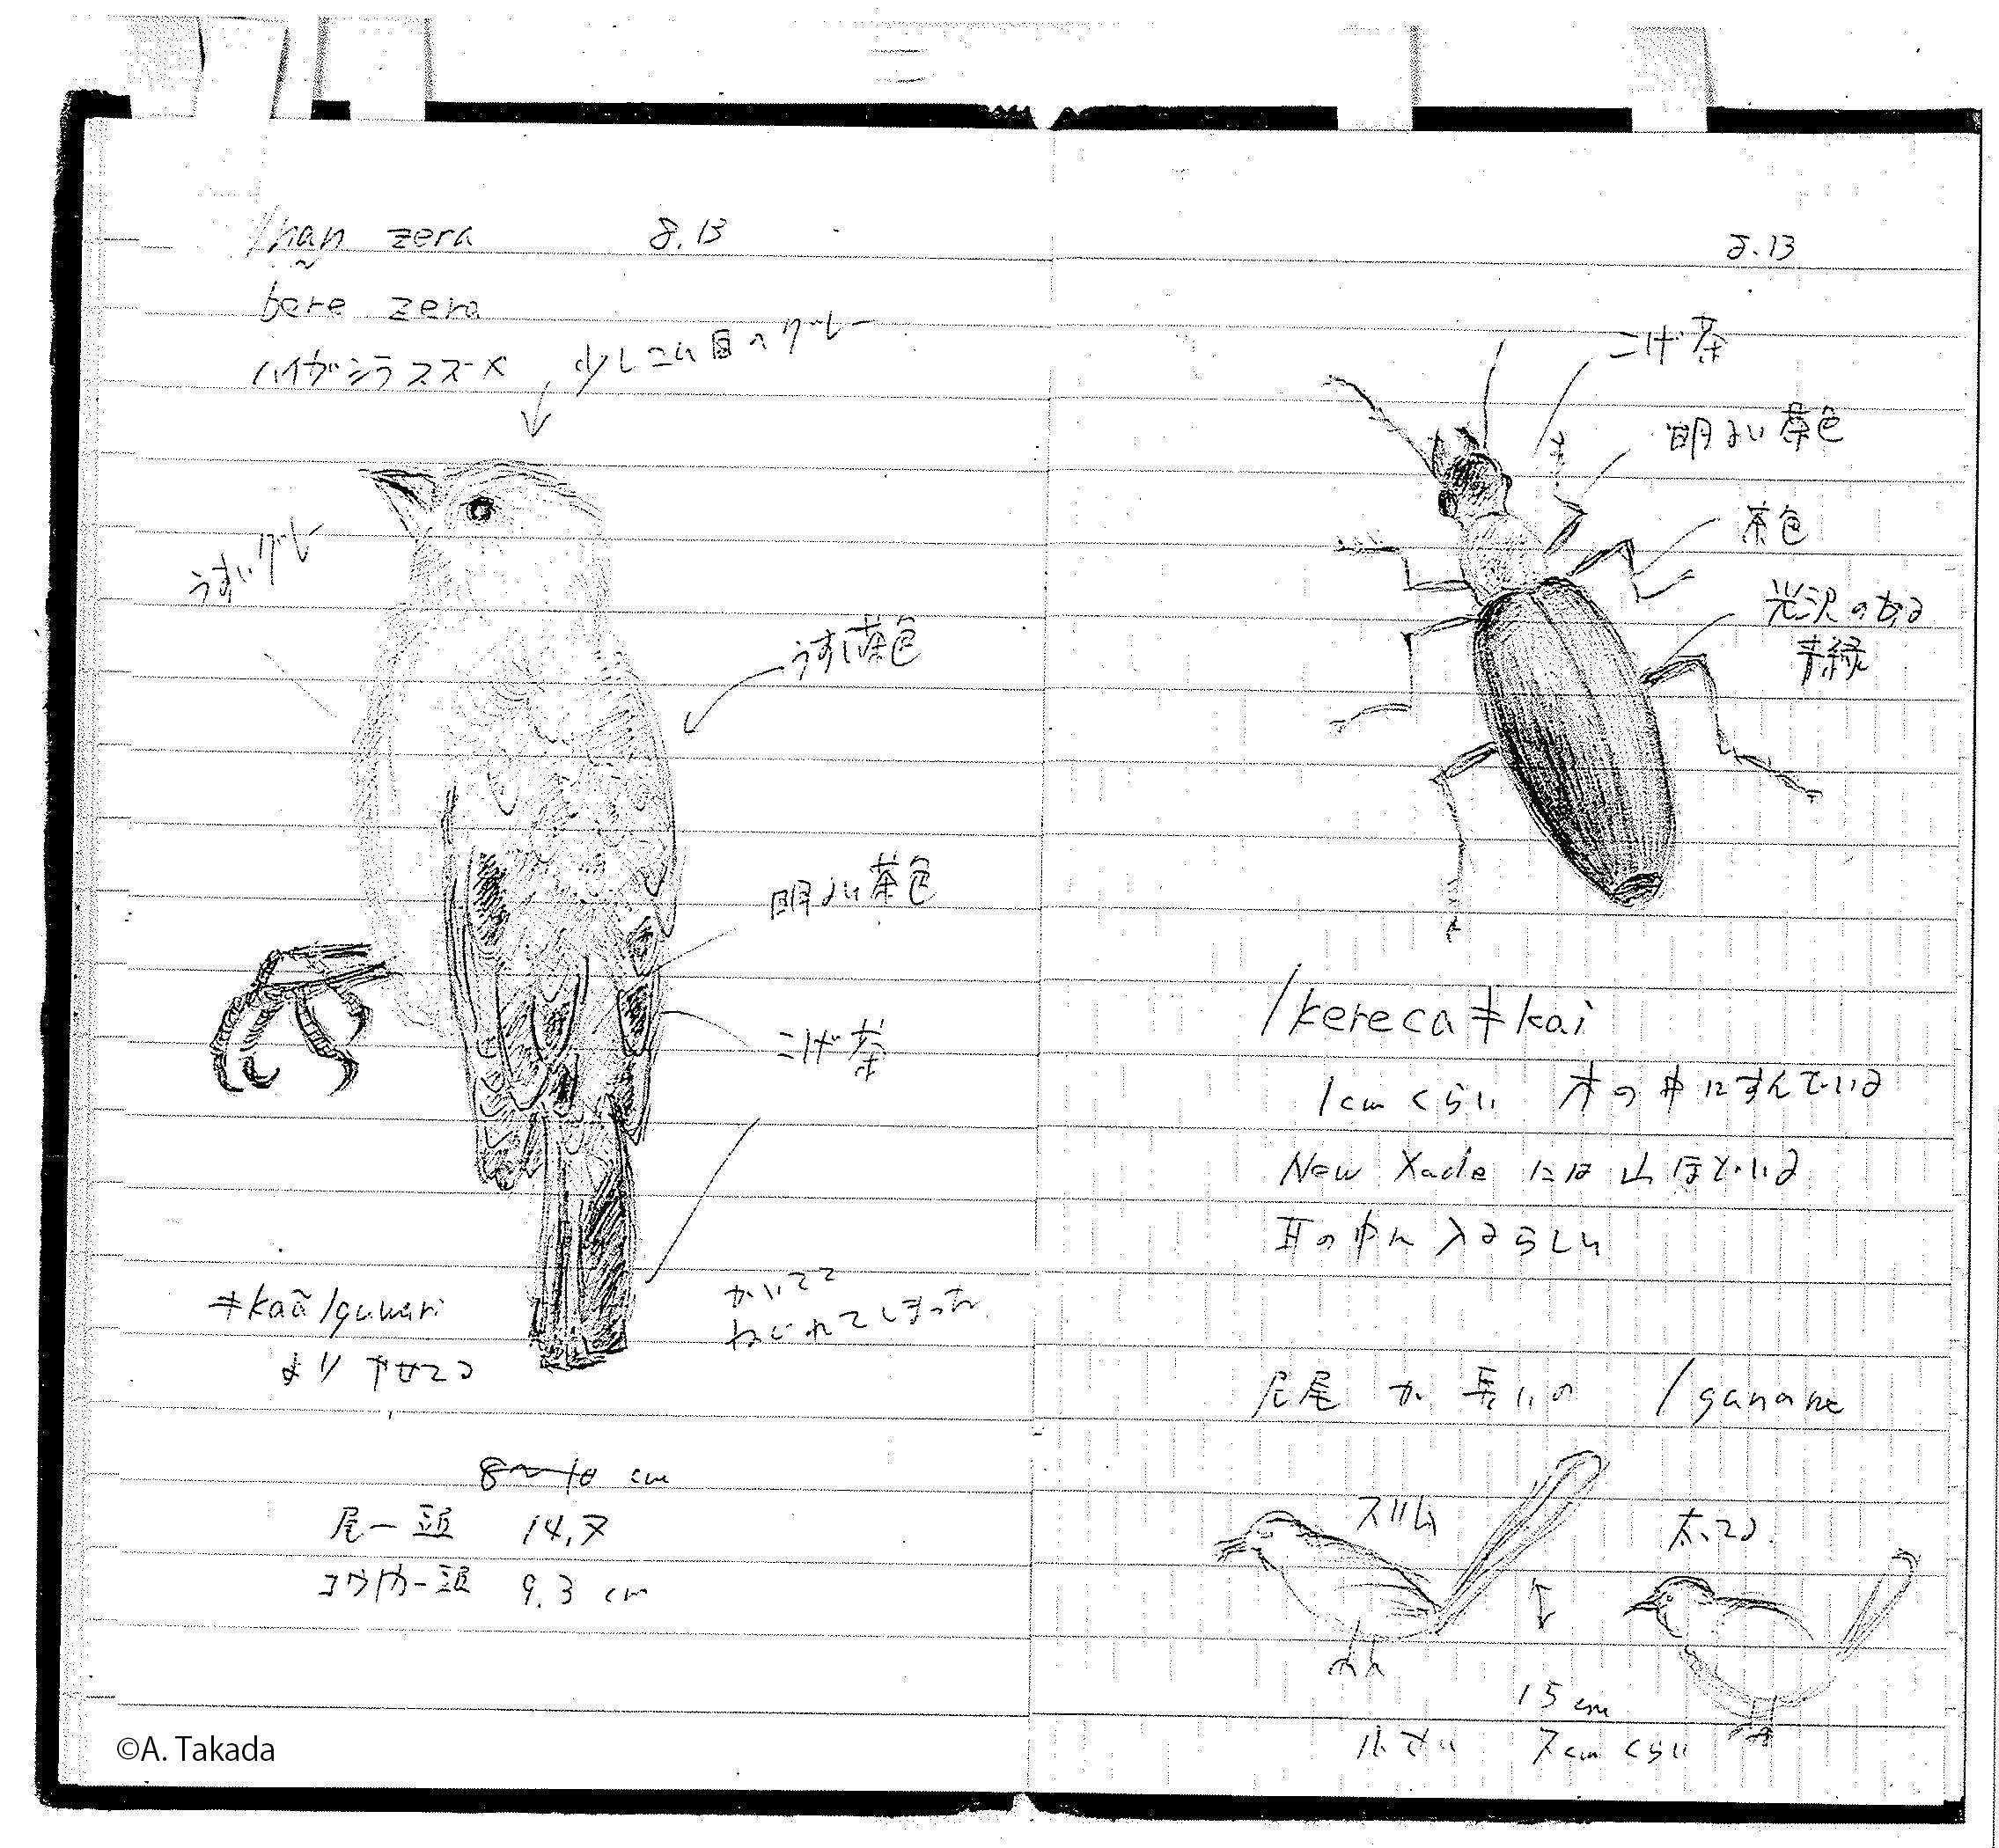 /nan zera 8.13
bere zera
ハイガシラスズメ
少しこい目のグレー
うすいグレー
うすい茶色
明るい茶色
こげ茶
かいてて
ねじれてしまった
ǂkaã /guwari
より やせてる
8〜10 cm
尾ー頭 14.7
コウカー頭 9.3 cm
8.13
こげ茶
明るい茶色
茶色
光沢のある
青緑
/kereca ǂkai
1cmくらい 木の中にすんでいる
New Xade には山ほどいる
耳の中に入るらしい
尾が長いの /ganane
スリム
太ってる
15cm
小さい 7cmくらい
©A. Takada